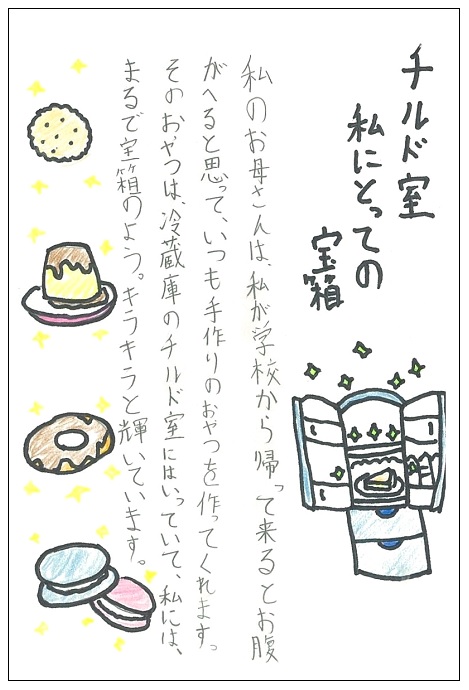 チルド室
私にとっての
宝箱
私のお母さんは、私が学校から帰って来るとお腹
がへると思って、いつも手作りのおやつを作ってくれます。
そのおやつは、冷蔵庫のチルド室にはいっていて、私には、
まるで宝箱のよう。キラキラと輝いています。